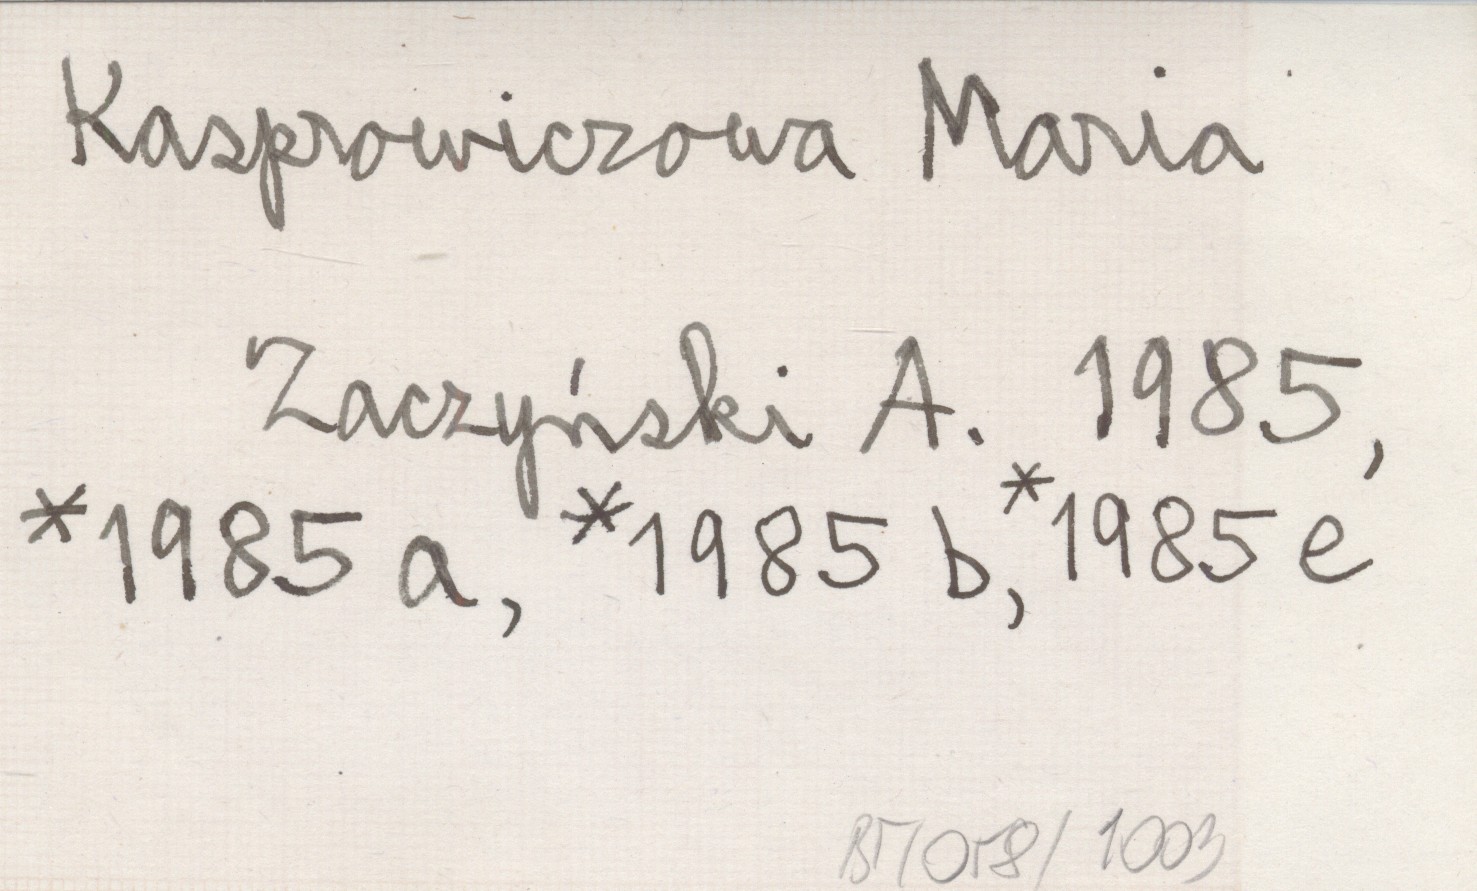 Kasprowiczowa Maria
Zaczyński A. 1985,
*1985 a, *1985 b, *1985 e
1003